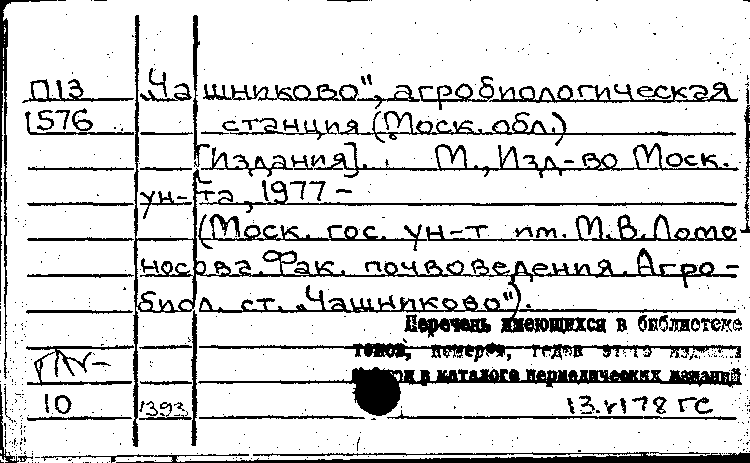 П13 „Чашниково", агробиологическая
1576 станция (Моск. обл.)
[Издания]. М., Изд-во Моск.
ун-та, 1977 -
(Моск. гос. ун-т им. М.В. Ломо
носова. Фак. почвоведения. Агро-
биол. ст. „Чашниково").
Перечень имеющихся в библиотеке
томов, номеров, годов этого издания
в каталоге периодических изданий
10 1393 13.VI 78 ГС